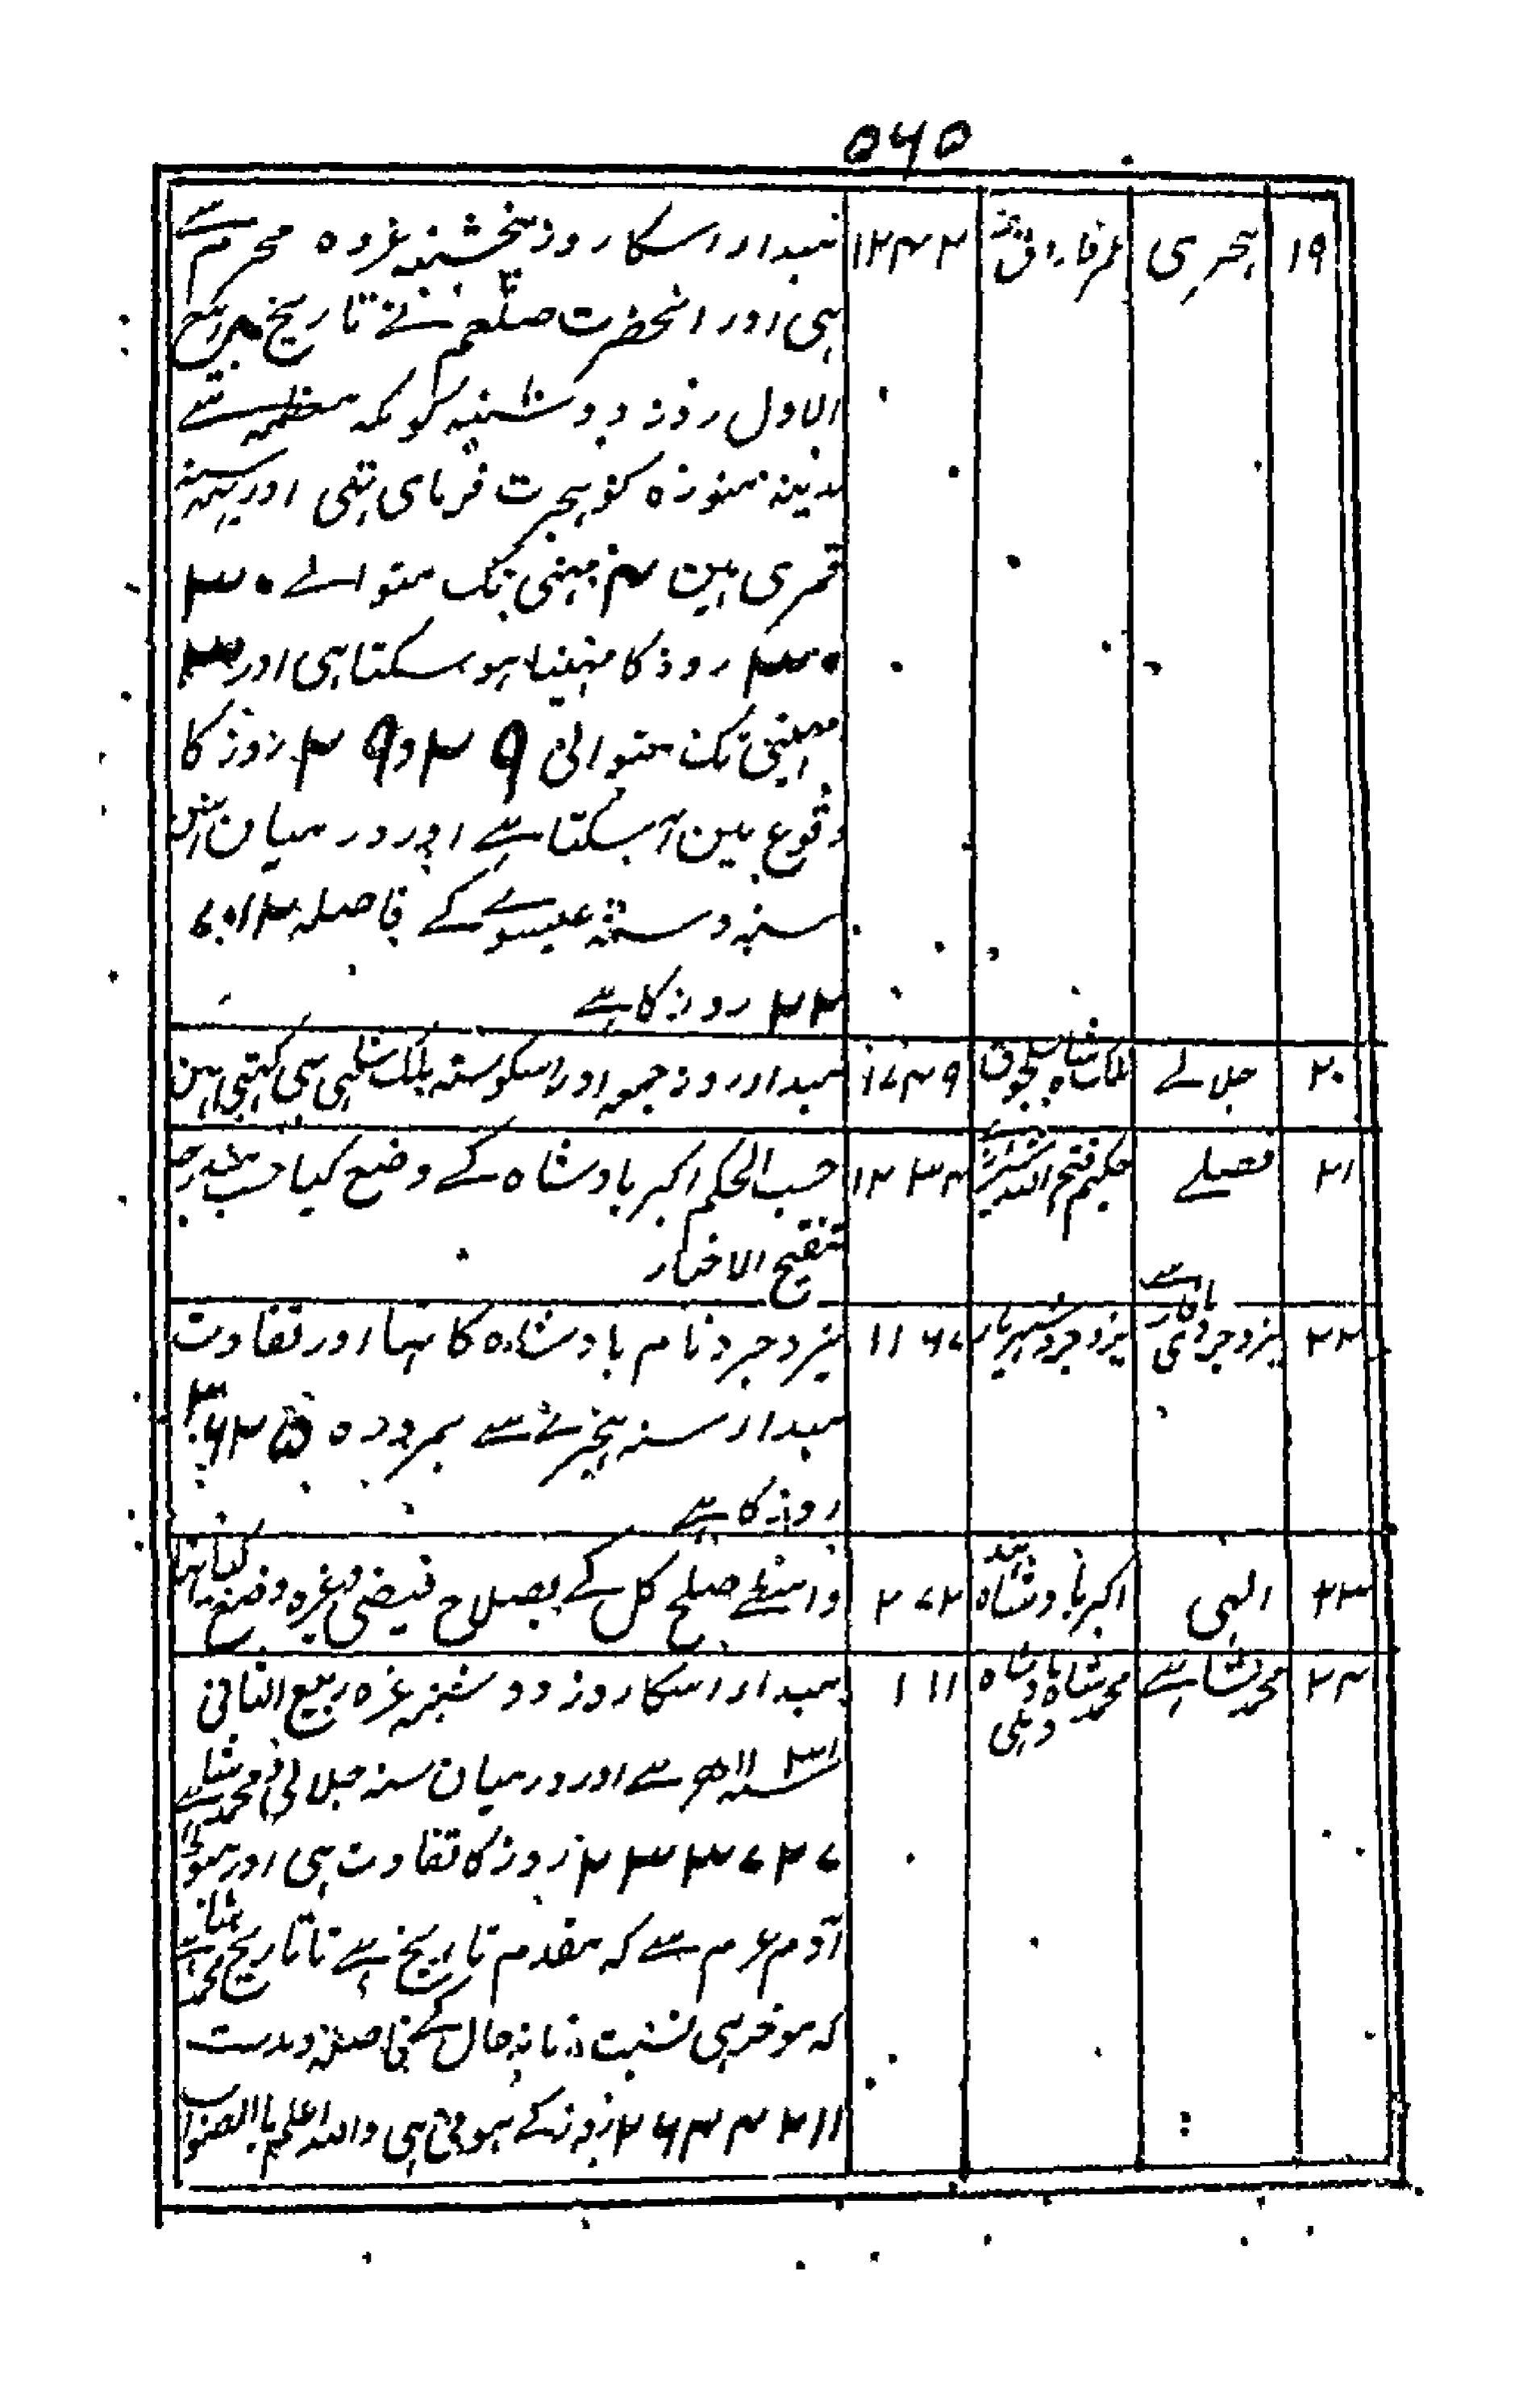 ۵۶۵
۱۹ ہجری عمر فاروق رض ۱۲۴۲ مبداء اسکا روز پنجشنبہ غرہ محرم سے
ہی اور انحضرت صلعم نے تاریخ ربیع
الاول روز دوشنبہ کو مکہ معظمہ سے
مدینہ منورہ کو ہجرت فرمای تہی اور یہہ سنہ
قمری ہین ۴ مہینی تک متوالے ۳۰
۳۰ روز کا مہینا ہو سکتا ہی اور ۳
مہینی تک متوالی ۲۹ و ۲۹ روز کا
وقوع مین آ سکتا ہے اور درمیان اس
سنہ و سنہ عیسوے کے فاصلہ
روز کا ہے
۲۰ جلالے ملک شاہ سلجوق ۱۷۴۹ مبداء روز جمعہ اور اسکو سنہ ملک شاہی بہی کہتی ہین
۲۱ فصلے حکیم فتح اللہ شیرازی ۱۲۳۴ حسب الحکم اکبر بادشاہ کے وضع کیا حسب مندرجہ
تنقیح الاخبار
۲۲ یزدجردی یا فارسے یزدجرد شہریار ۱۱۶۷ یزدجرد نام بادشاہ کا تہا اور تفاوت
مبداء سنہ ہجرے سے
روز کا ہے
۲۳ الہی اکبر بادشاہ ہند ۲۷۲ واسطے صلح کل کے بصلاح فیضی وغیرہ وضع کیا تہا
۲۴ محمد شاہے محمد شاہ بادشاہ دہلی ۱۱۱ مبداء اسکا روز دوشنبہ غرہ ربیع الثانی
سنہ ۱۱۳۱ھ سے اور درمیان سنہ جلالی و محمد شاہے
۲۳۳۷۲۷ روز کا تفاوت ہی اور ہبوط
آدم عرم سے کہ مقدم تاریخ ہے تا تاریخ محمد شاہے
کہ موخر ہی نسبت زمانہ حال کے فاصلہ و مدت
۲۶۴۴۲۱۱ روز کے ہوتی ہی واللہ اعلم با الصواب